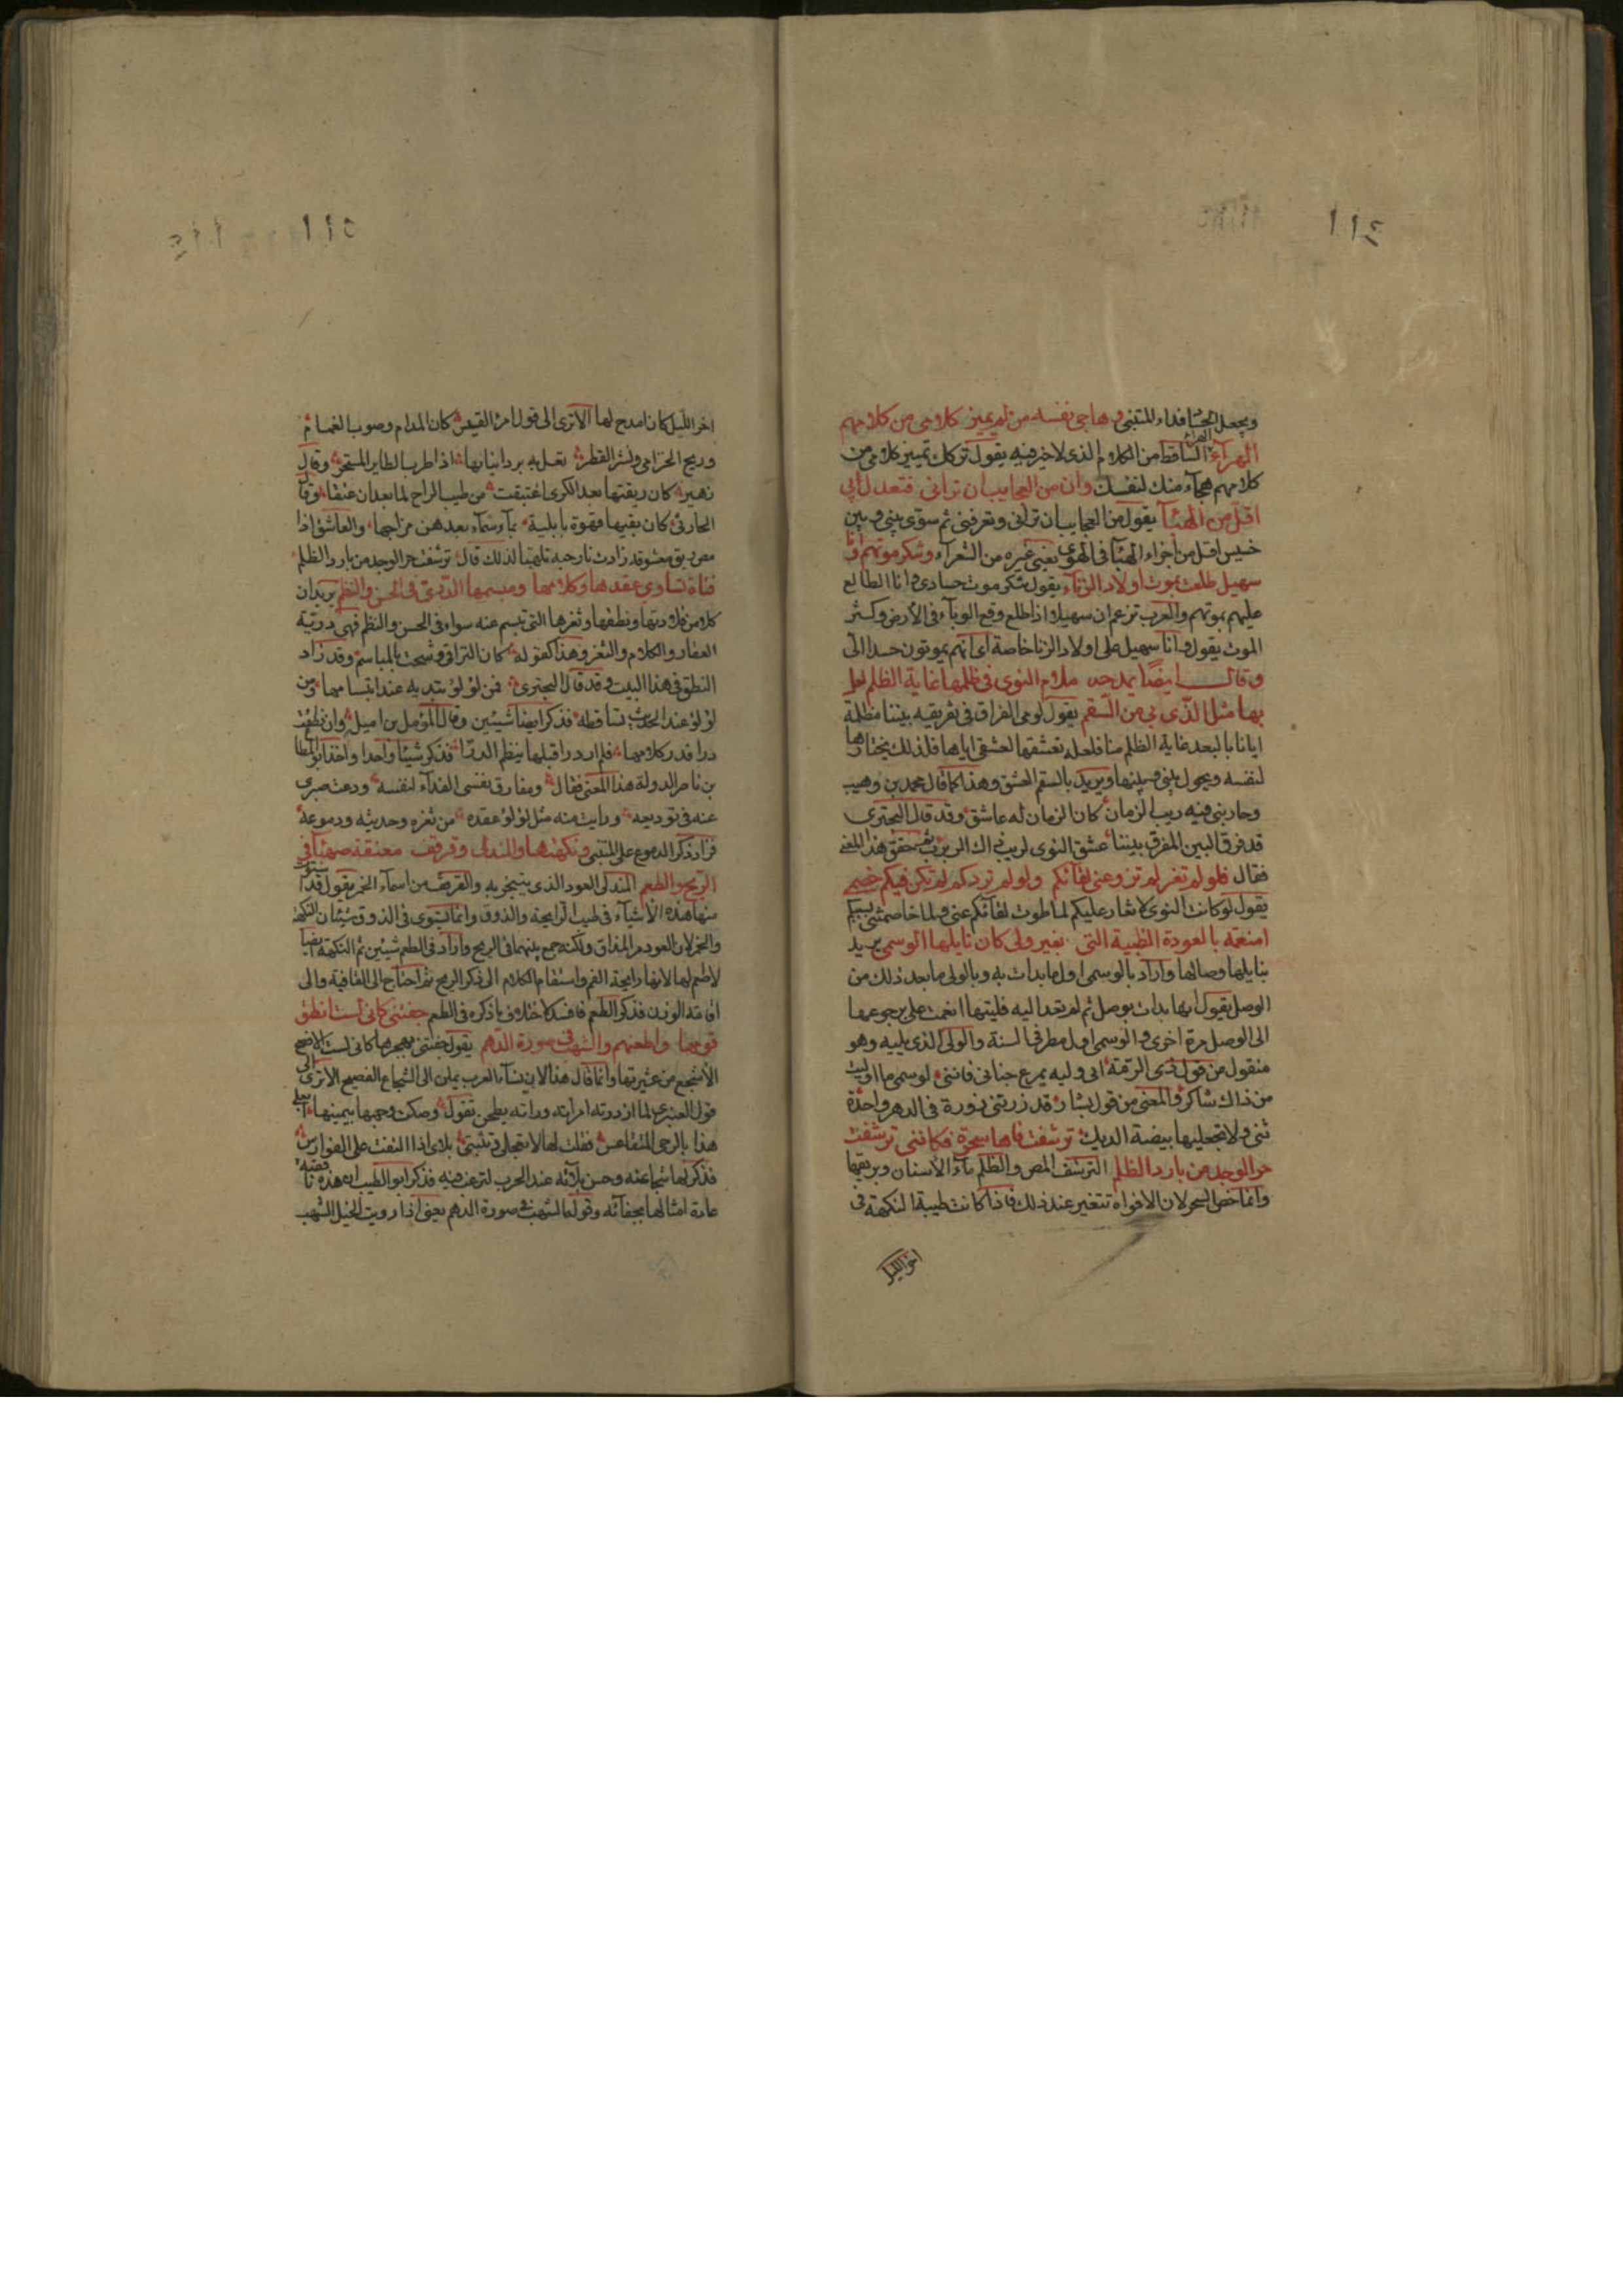 ١١٤
ويجعل الحساد فداء للمتنبي وهاجي نفسه من لم يميز كلامي من كلامهم
الهراء الهراء الساقط من الكلام الذي لا خير فيه يقول تركك تمييز كلامي من
كلامهم هجاء منك لنفسك وان من العجايب ان تراني فتعدل بي
اقل من الهبا يقول من العجايب ان تراني وتعرفني ثم سوى بيني وبين
خسيس اقل من اجزاء الهبا في الهوى يعني غيره من الشعراء وتنكر موتهم وانا
سهيل طلعت بموت اولاد الزناء يقول تنكر موت حسادي وانا الطالع
عليهم بموتهم والعرب تزعم ان سهيلا اذا طلع وقع الوباء في الارض وكثر
الموت يقول وانا سهيل على اولاد الزنا خاصة اي انهم يموتون حسدا الي
وقال ايضا يمدحه ملام النوى في ظلمها غاية الظلم لعل
بها مثل الذي بي من السقم يقول لومي الفراق في تفريقه بيننا مظلمة
ايانا بالبعد غاية الظلم منا فلعله تعشقها لعشقي اياها فلذلك يختارها
لنفسه ويحول بيني وبينها ويريد بالسقم العشق وهذا كما قال محمد بن وهيب
وحاربني فيه ريب الزمان كان الزمان له عاشق وقد قال البحتري
قد فرق البين المفرق بيننا عشق النوى لربيب ذاك الربرب ثم حقق هذا المعنى
فقال فلو لم تغر لم تزو عني لقائكم ولو لم تردكم لم تكن فيكم خصمي
يقول لو كانت النوى لا تغار عليكم لما طوت لقائكم عني ولما خاصمتني بسببكم
امنعمة بالعودة الظبية التي بغير ولي كان نايلها الوسمي يريد
بنايلها وصالها واراد بالوسمي اول ما بدات به وبالولي ما بعد ذلك من
الوصل يقول انها بدات بوصل ثم لم تعد اليه فليتها انعمت علي برجوعها
الى الوصل مرة اخرى والوسمي اول مطر في السنة والولي الذي يليه وهو
منقول من قول ذي الرمة لي وليه يمرع جنابي فانني لوسمي ما اوليت
من ذاك شاكر والمعنى من قول بشار قد زرتني زورة في الدهر واحدة
ثني ولا تجعليها بيضة الديك ترشفت فاها سحرة فكانني ترشفت
حر الوجد من بارد الظلم الترشف المص والظلم ماء الاسنان وبريقها
وانما خص السحر لان الافواه تتغير عند ذلك فاذا كانت طيبة النكهة في
اخر الليل
١١٥
اخر الليل كان امدح لها الا ترى الى قول امرء القيس كان المدام وصوب الغمام
وريح الخزامى ونشر القطر يعل به برد انيابها اذا طرب الطاير المستحر وقال
زهير كان ريقتها بعد الكرى اغتبقت من طيب الراح لما بعد ان عتقا وقال
الحارثي كان بفيها قهوة بابلية بماء سماء بعد هن مزاجها والعاشق اذا
مص ريق معشوقه زادت نار حبه تلهبا لذلك قال ترشفت حر الوجد من بارد الظلم
فتاة تساوى عقدها وكلامها ومبسمها الدري في الحسن والنظم يريد ان
كلا من قلادتها ونطقها وثغرها التي تبسم عنه سواء في الحسن والنظم فهي درية
العقد والكلام والثغر وهذا كقوله كان التراقي وشحت بالمباسم وقد زاد
النطق في هذا البيت وقد قال البحتري فمن لؤلؤ تبديه عند ابتسامها ومن
لؤلؤ عند الحديث تساقطه فذكر ايضا شيئين وقال المؤمل بن اميل وان نطقت
درا فدر كلامها فلم ار درا قبلها ينظم الدرا فذكر شيئا واحدا واخذ ابو المطا
بن ناصر الدولة هذا المعنى فقال ومفارق نفسي الفداء لنفسه ودعت صبري
عنه في توديعه ورايت منه مثل لؤلؤ عقده من ثغره وحديثه ودموعه
فزاد ذكر الدموع على المتنبي ونكهتها والمندلي وقرقف معتقة صهبا في
الريح والطعم المندلي العود الذي يتبخر به والقرقف من اسماء الخمر يقول قد استوى
منها هذه الاشياء في طيب الرايحة والذوق وانما يستوي في الذوق شيئان النكهة
والخمر لان العود مر المذاق ولكنه جمع بينهما في الريح واراد في الطعم شيئين ثم النكهة ايضا
لا طعم لها لانها رايحة الفم واستقام الكلام الى ذكر الريح ثم احتاج الى القافية والى
اقامة الوزن فذكر الطعم فافسد كلامه بما ذكره في الطعم جفتني كاني لست انطق
قومها واطعنهم والشهب في صورة الدهم يقول جفتني بهجرها كاني لست الافصح
الاشجع من عشيرتها وانما قال هذا لان نساء العرب يملن الى الشجاع الفصيح الا ترى الى
قول العنبري لما ازدرته امراته وراته يطحن تقول وصكت وجهها بيمينها ابعلي
هذا بالرحى المتقاعس فقلت لها لا تعجلي وتبيني بلاي اذا التفت علي الفوارس
فذكر لها شجاعته وحسن بلائه عند الحرب لترغب فيه فذكر ابو الطيب ان هذه
عادة امثالها بجفائه وقوله والشهب في صورة الدهم يعني اذا رويت الخيل الشهب